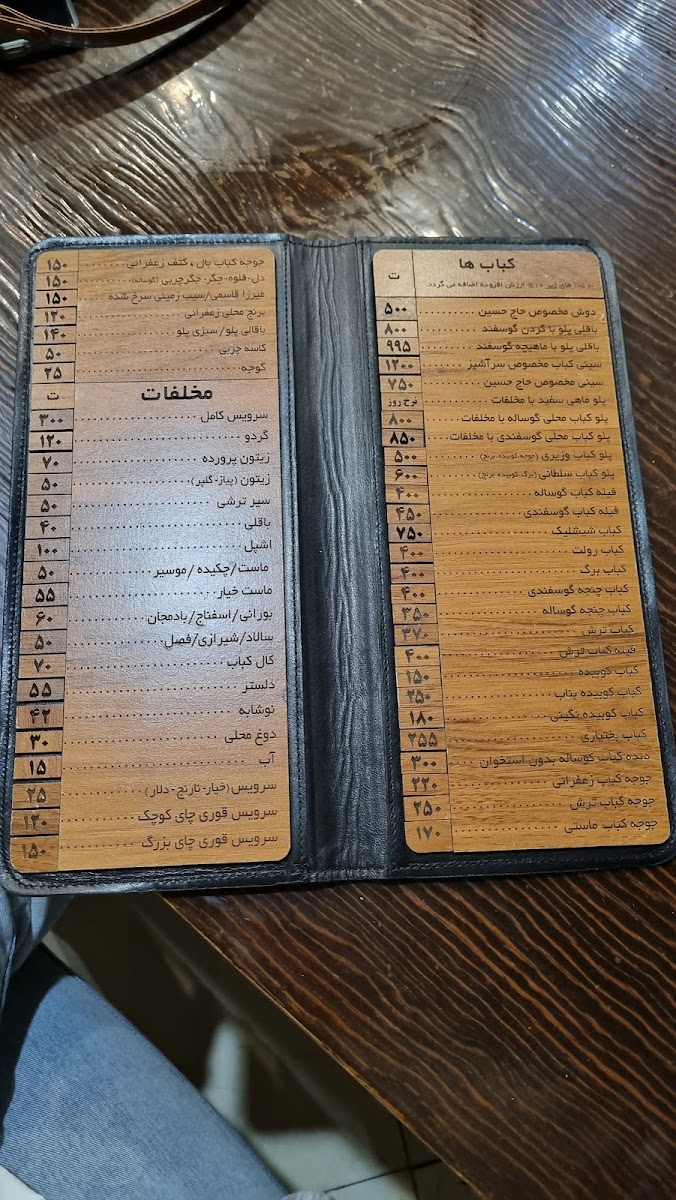 کباب ها
ت
به غذا های زیر ۱۰٪ ارزش افزوده اضافه می گردد.
دوش مخصوص حاج حسین ۵۰۰
باقلی پلو با گردن گوسفند ۸۰۰
باقلی پلو با ماهیچه گوسفند ۹۹۵
سینی کباب مخصوص سرآشپز ۱۲۰۰
سینی مخصوص حاج حسین ۷۵۰
پلو ماهی سفید با مخلفات نرخ روز
پلو کباب محلی گوساله با مخلفات ۸۰۰
پلو کباب محلی گوسفندی با مخلفات ۸۵۰
پلو کباب وزیری (جوجه کوبیده برنج) ۵۰۰
پلو کباب سلطانی (برگ کوبیده برنج) ۶۰۰
فیله کباب گوساله ۴۰۰
فیله کباب گوسفندی ۴۵۰
کباب شیشلیک ۷۵۰
کباب رولت ۴۰۰
کباب برگ ۴۰۰
کباب چنجه گوسفندی ۴۰۰
کباب چنجه گوساله ۳۵۰
کباب ترش ۳۷۰
فیله کباب ترش ۴۰۰
کباب کوبیده ۱۵۰
کباب کوبیده بناب ۲۵۰
کباب کوبیده نگینی ۱۸۰
کباب بختیاری ۲۵۵
دنده کباب گوساله بدون استخوان ۳۰۰
جوجه کباب زعفرانی ۲۲۰
جوجه کباب ترش ۲۵۰
جوجه کباب ماستی ۱۷۰
جوجه کباب بال، کتف زعفرانی ۱۵۰
دل-قلوه-جگر-جگرچربی (گوساله) ۱۵۰
میرزا قاسمی/سیب زمینی سرخ شده ۱۵۰
برنج محلی زعفرانی ۱۲۰
باقالی پلو/سبزی پلو ۱۴۰
کاسه چربی ۵۰
گوجه ۲۵
مخلفات
ت
سرویس کامل ۳۰۰
گردو ۱۲۰
زیتون پرورده ۷۰
زیتون (پیاز-گلپر) ۵۰
سیر ترشی ۵۰
باقلی ۴۰
اشپل ۱۰۰
ماست/چکیده/موسیر ۵۰
ماست خیار ۵۵
بورانی/اسفناج/بادمجان ۶۰
سالاد/شیرازی/فصل ۵۰
کال کباب ۷۰
دلستر ۵۵
نوشابه ۴۲
دوغ محلی ۳۰
آب ۱۵
سرویس (خیار-نارنج-دلار) ۲۵
سرویس قوری چای کوچک ۱۲۰
سرویس قوری چای بزرگ ۱۵۰